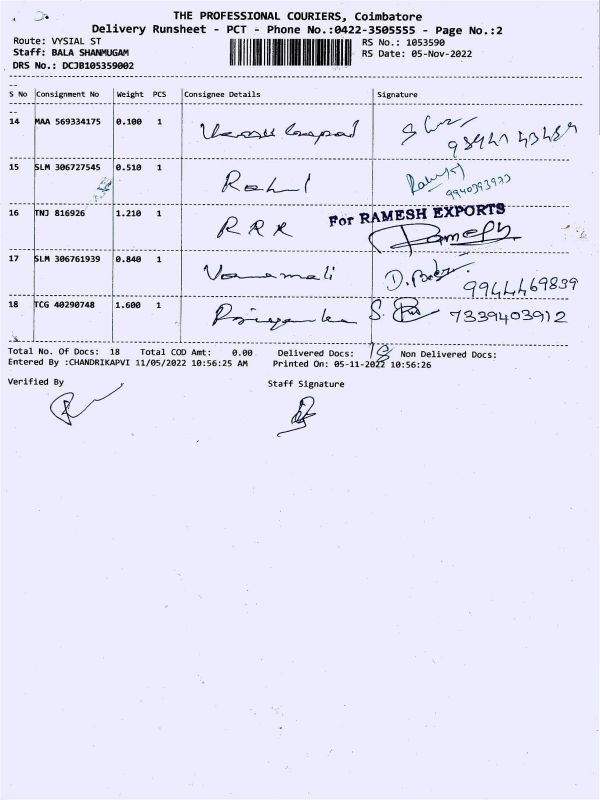 THE PROFESSIONAL COURIERS, Coimbatore
Delivery Runsheet - PCT - Phone No.:0422-3505555 - Page No.:2
Route: VYSIAL ST
RS No.: 1053590
Staff: BALA SHANMUGAM
RS Date: 05-Nov-2022
DRS No.: DCJB105359002
S No Consignment No Weight PCS Consignee Details Signature
14 MAA 569334175 0.100 1
15 SLM 306727545 0.510 1 Rahul
9940393973
16 TNJ 816926 1.210 1 RRR For RAMESH EXPORTS
Ramesh
17 SLM 306761939 0.840 1 Vanamali D. Babu
9944469839
18 TCG 40290748 1.600 1 Priyanka S. 7339403912
Total No. Of Docs: 18 Total COD Amt: 0.00 Delivered Docs: 18 Non Delivered Docs:
Entered By :CHANDRIKAPVI 11/05/2022 10:56:25 AM Printed On: 05-11-2022 10:56:26
Verified By Staff Signature